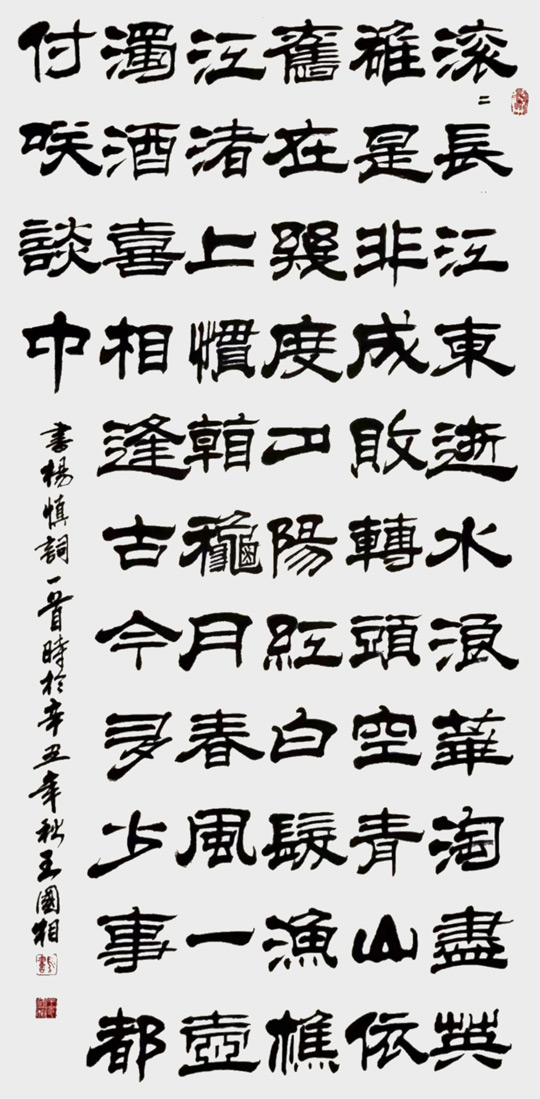 滚二長江東逝水浪華淘盡英
雄是非成敗轉頭空青山依
舊在幾度夕陽紅白髮漁樵
江渚上慣看龝月春風一壺
濁酒喜相逢古今多少事都
付咲談中
書楊慎詞一首時於辛丑年秋王國相